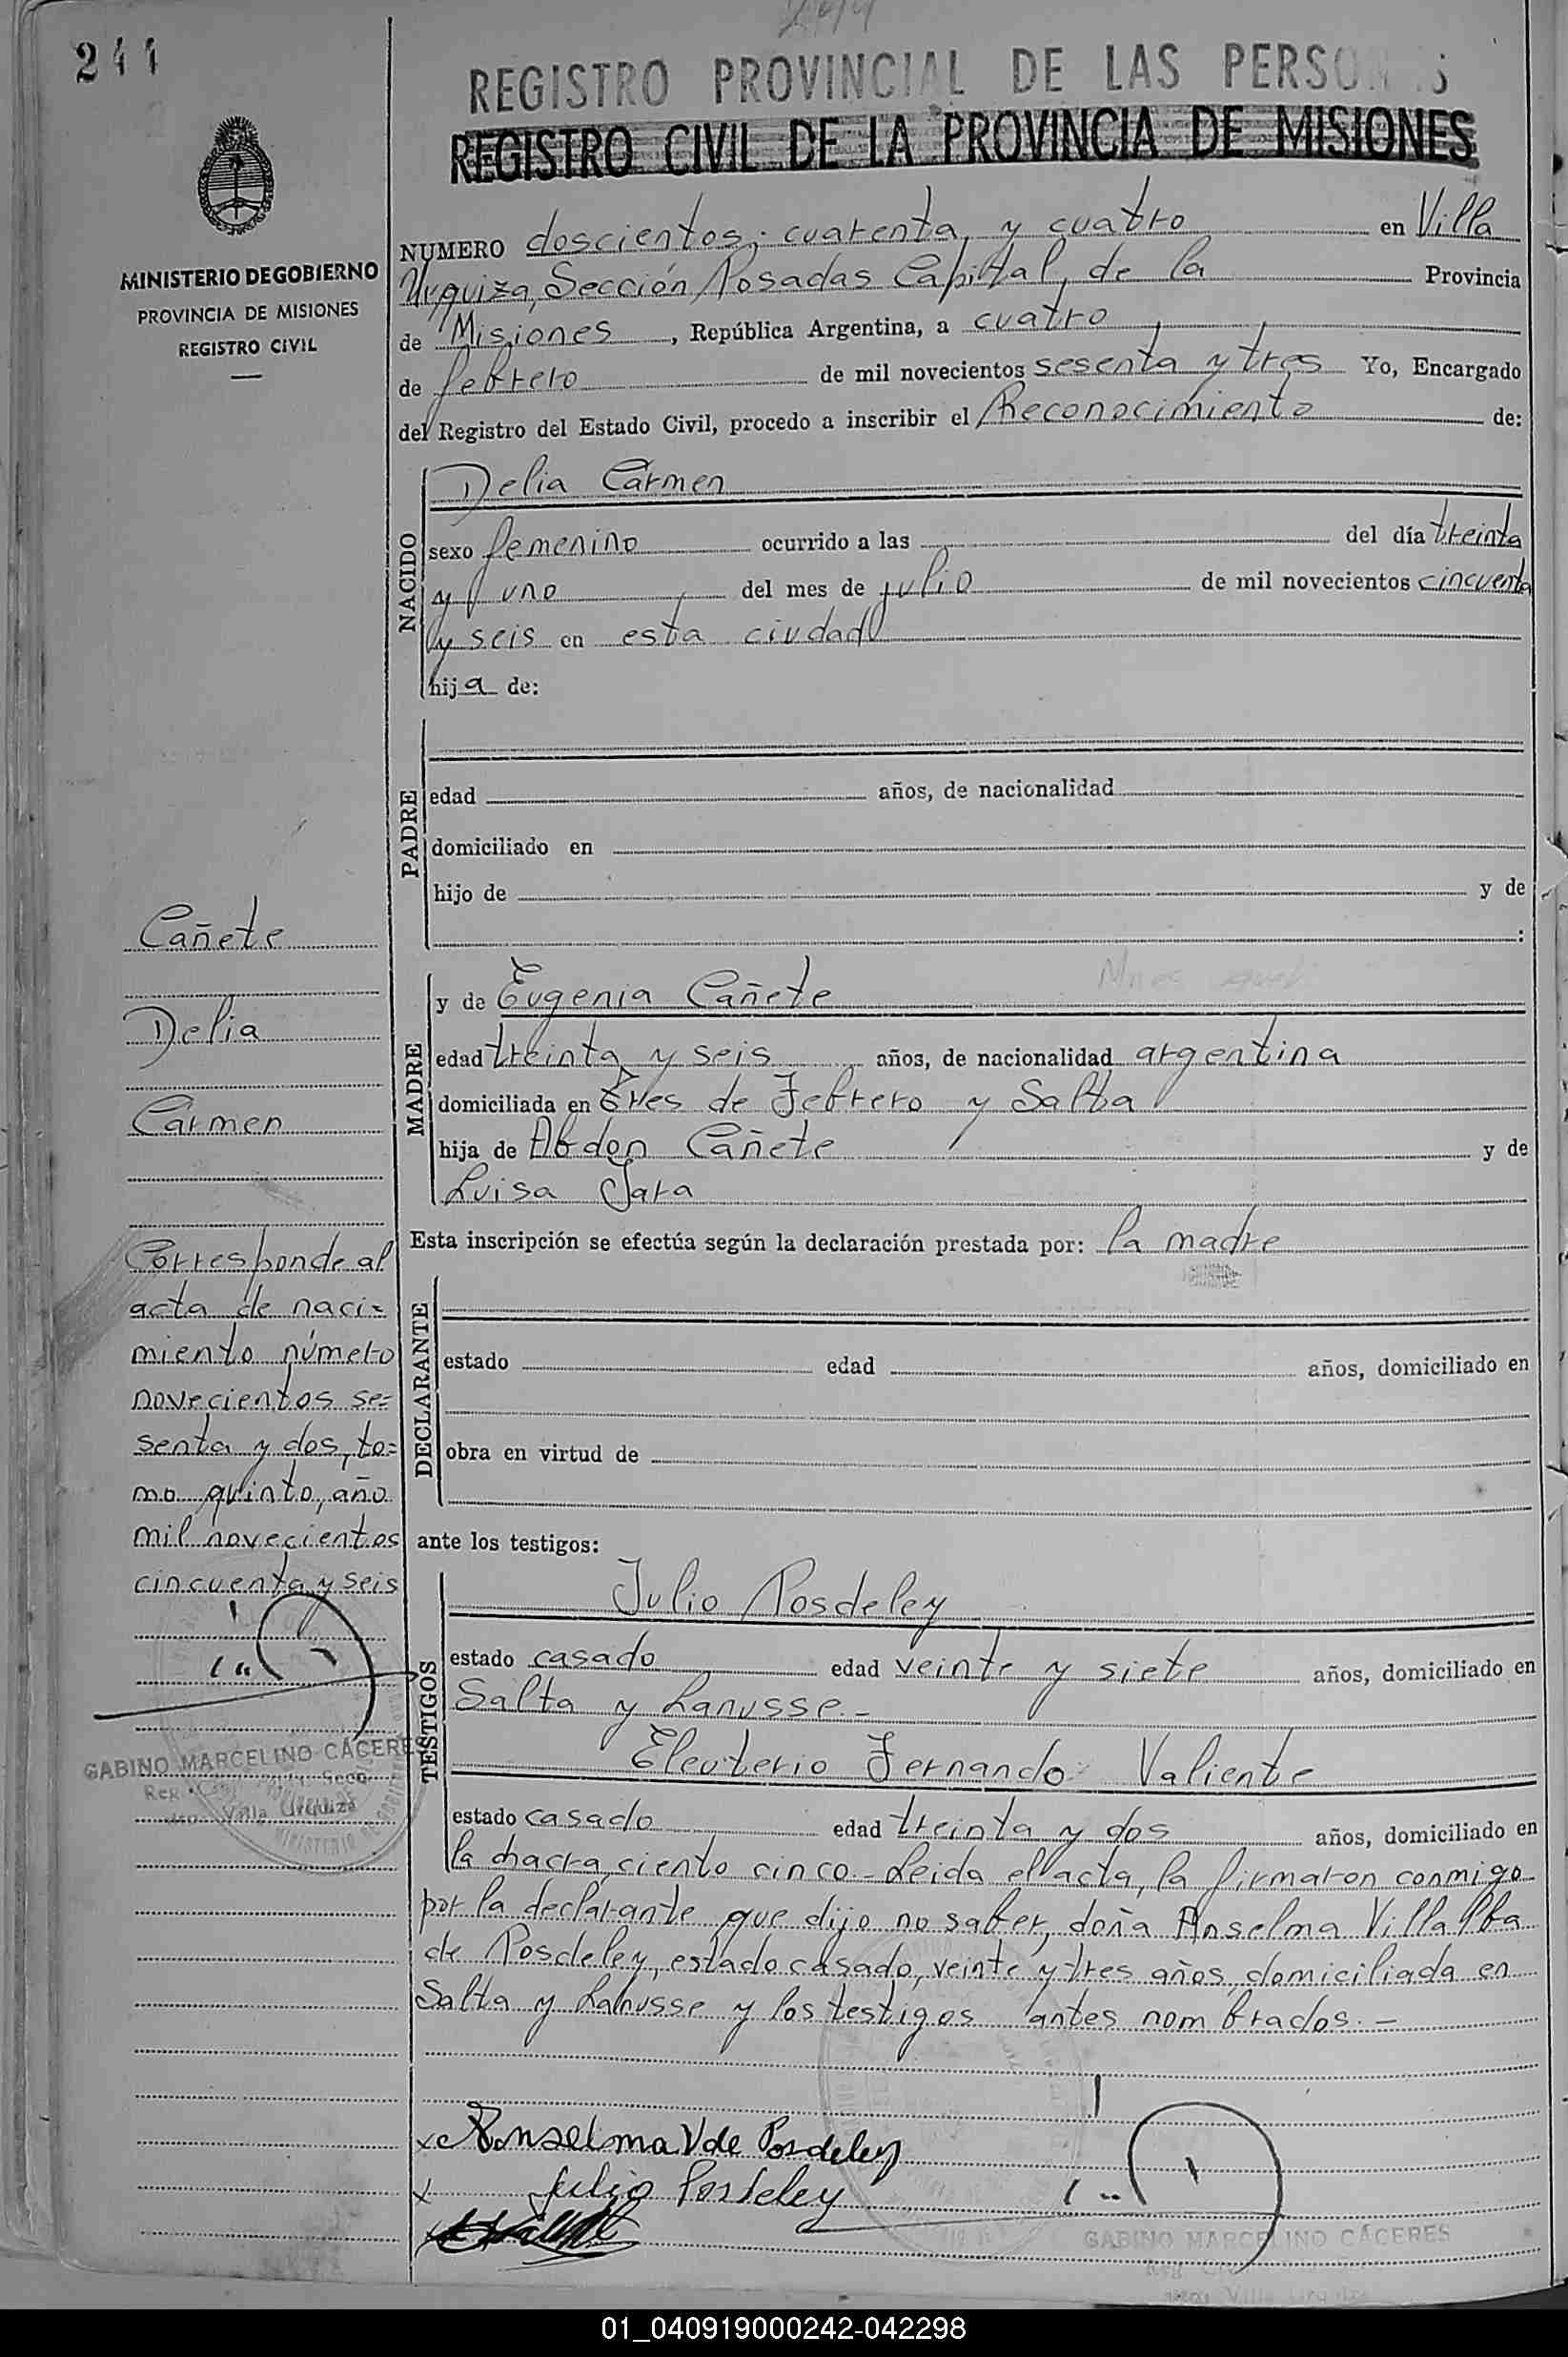 244
REGISTRO PROVINCIAL DE LAS PERSONAS
REGISTRO CIVIL DE LA PROVINCIA DE MISIONES
MINISTERIO DE GOBIERNO
PROVINCIA DE MISIONES
REGISTRO CIVIL
NUMERO doscientos cuarenta y cuatro en Villa
Urquiza, Sección Posadas Capital, de la Provincia
de Misiones, República Argentina, a cuatro
de febrero de mil novecientos sesenta y tres Yo, Encargado
del Registro del Estado Civil, procedo a inscribir el Reconocimiento de:
NACIDO
Delia Carmen
sexo femenino ocurrido a las del día treinta
y uno del mes de julio de mil novecientos cincuenta
y seis en esta ciudad
hija de:
PADRE
edad años, de nacionalidad
domiciliado en
hijo de y de
:
MADRE
y de Eugenia Cañete
edad treinta y seis años, de nacionalidad argentina
domiciliada en tres de Febrero y Salta
hija de Abdon Cañete y de
Luisa Jara
Esta inscripción se efectúa según la declaración prestada por: la madre
DECLARANTE
estado edad años, domiciliado en
obra en virtud de
ante los testigos:
TESTIGOS
Julio Posdeley
estado casado edad veinte y siete años, domiciliado en
Salta y Lanusse.-
Eleuterio Fernando Valiente
estado casado edad treinta y dos años, domiciliado en
la chacra ciento cinco.- Leida el acta, la firmaron conmigo
por la declarante que dijo no saber, doña Anselma Villalba
de Posdeley, estado casado, veinte y tres años, domiciliada en
Salta y Lanusse y los testigos antes nombrados.-
x Anselma V de Posdeley
x Julio Posdeley
x
GABINO MARCELINO CÁCERES
Villa Urquiza
Cañete
Delia
Carmen
Corresponde al
acta de naci=
miento número
novecientos se=
senta y dos, to=
mo quinto, año
mil novecientos
cincuenta y seis
GABINO MARCELINO CÁCERES
Villa Urquiza
01_040919000242-042298